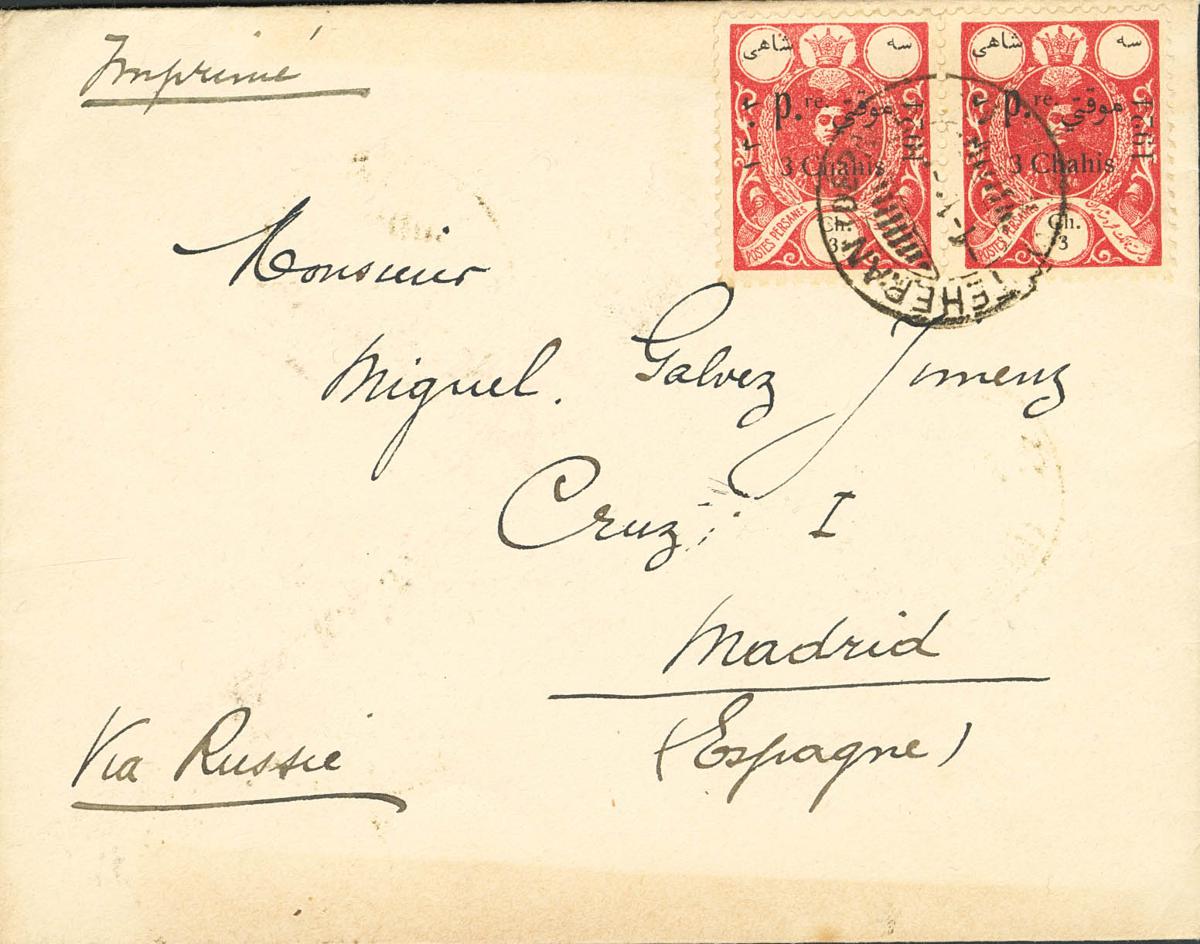 Imprimé
شاهی سه
۱۳۰۲ p.re. موقتي 1924
3 Chahis
POSTES PERSANES
Ch.
3
شاهی سه
p.re. موقتي 1924
3 Chahis
POSTES PERSANES
Ch.
3
TEHERAN
Monsieur
Miguel. Galvez Jimenz
Cruz, I
Madrid
(Espagne)
Via Russie